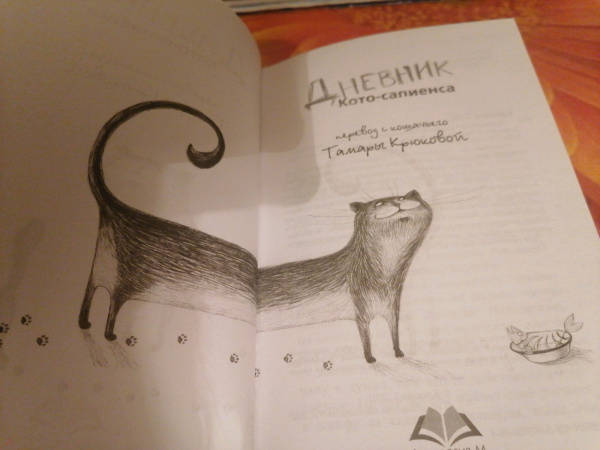 Дневник
Кото-сапиенса
перевод с кошачьего
Тамары Крюковой